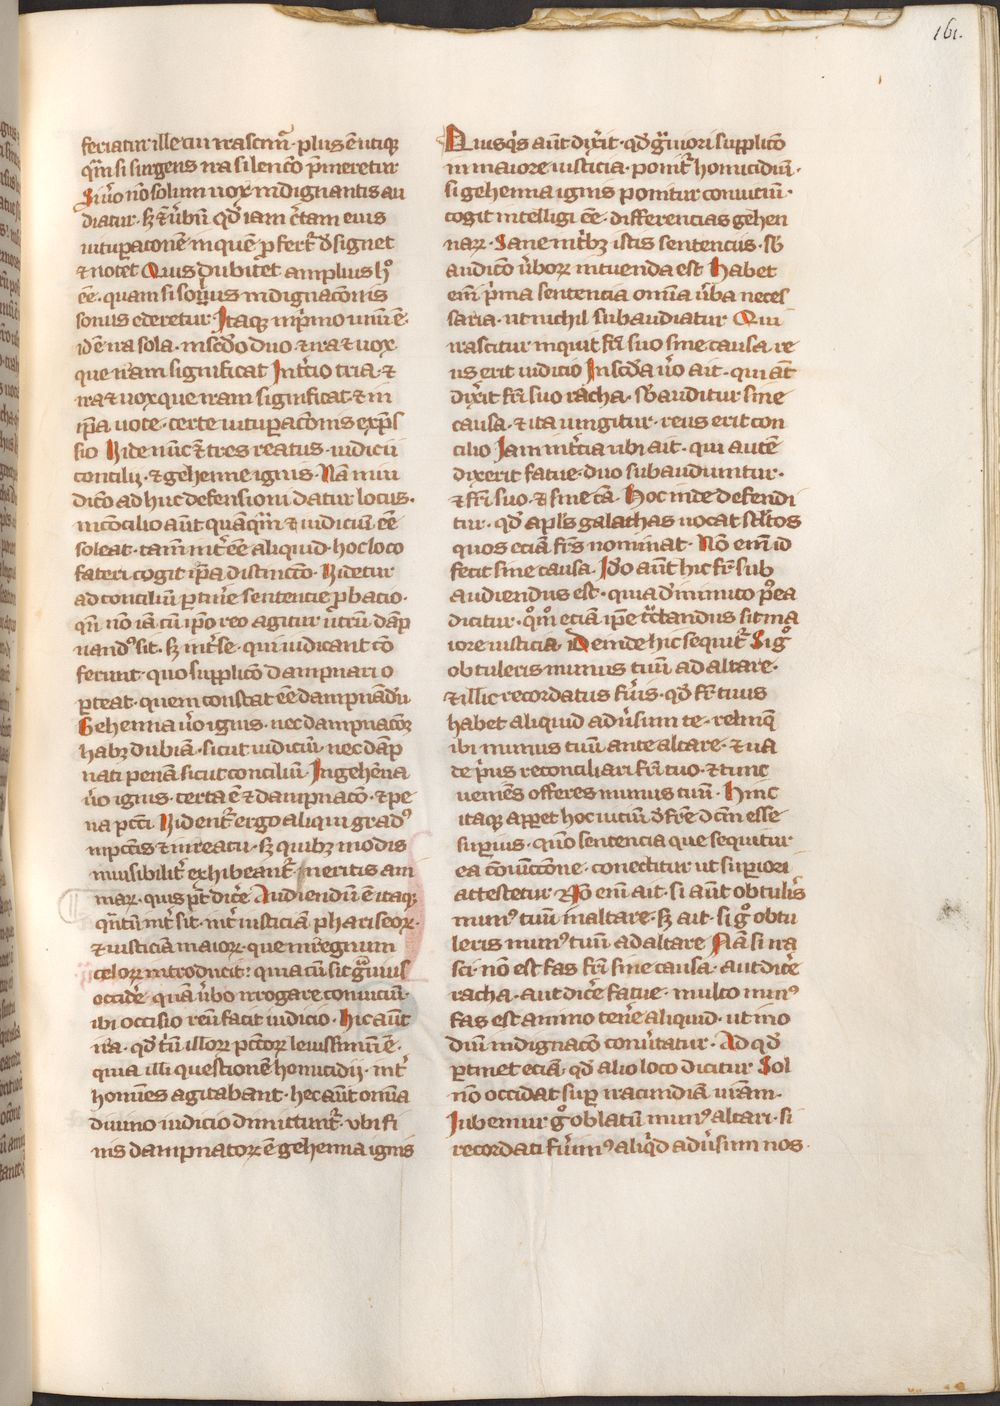 161.
feriatur ille cui irascimr̄ · plus ē utiqꝫ
qm̄ si surgens ira silencō p̄meretur
Si v̾o nō solum uox indignantis au
diatur · sꝫ ⁊ v̾bū qd̾ iam c̾tam eius
uituꝑatonē in quē ꝓfert̾ d̾signet
⁊ notet Quis dubitet amplius hº
eē · quam si solius indignacōnis
sonus ederetur Itaqꝫ in p̾mo unū ē ·
id ē ira sola · in scd̾o duo ⁊ ira ⁊ uox
que iram significat In t̾cio tria · ⁊
ira ⁊ uox que iram significat · ⁊ in
ip̄a uote · certe uituꝑacōnis exp̄s
sio Vide nūc ⁊ tres reatus · iudicii
concilij · ⁊ gehenne ignis · Nā in iu
dicō ad huc defensioni datur locus ·
in cōcilio aūt quāqm̄ ⁊ iudiciū eē
soleat · tam̄ int̾ eē aliquid · hoc loco
fateri cogit ip̄a distinctō · Videtur
ad conciliū ꝑtin̾e sententie ꝓlatio ·
qn̄ nō iā cū ip̄o reo agitur utrū dāp
nandꝰ sit · sꝫ int̾ se · qui iudicant cō
ferunt · quo supplicō dampnari o
ꝑteat · quem constat eē dampnādū
Gehenna v̾o ignis · nec dampnacōꝫ
habꝫ dubiā · sicut iudiciū · nec dāp
nati penā sicut conciliū · In gehēna
v̾o ignis · certa ē ⁊ dampnacō · ⁊ pe
na pcc̄i Videnᵗ ergo aliqui gradꝰ
in pcc̄is ⁊ in reatu · sꝫ quibꝫ modis
inuisibilit̾ exhibeant̾ meritis ani
maꝝ · quis pt̄ dic̾e Audiendū ē itaqꝫ
qn̄tū int̾ sit · int̾ iusticiā phariseoꝝ ·
⁊ iusticiā maioꝝ · que in regnum
celoꝝ introducit : quia cū sit g̾uius
occid̾e · quā v̾bo irrogare conuiciū ·
ibi occisio reū facit iudicio · hic aūt
ira · qd̾ t̾ū illoꝝ pcc̄oꝝ leuissimū ē ·
quia illi questionē homicidij · int̾
homines agitabant · hec aūt om̄ia
diuino iudicio dimittunt̾ · vbi fi
nis dampnatoꝝ ē gehenna ignis
Quisqͥs aūt dix̾it · qd̾ g̾uiori supplicō
in maiore iusticia · ponit̾ homicidiū ·
si gehenna ignis ponitur conuiciū ·
cogit intelligi eē · differencias gehen
naꝝ · Sane in t̾bꝫ istis sentenciis · sb̾
audicō v̾boꝝ intuenda est Habet
em̄ p̾ma sentencia om̄ia v̾ba neces
saria · ut nichil subaudiatur Qui
irascitur inquit fr̄i suo sine causa · re
us erit iudicio In scd̾a v̾o ait · qui aūt
dix̾it fr̄i suo racha · sb̾auditur sine
causa · ⁊ ita iungitur · reus erit con
cilio Iam in t̾cia ubi ait · qui autē
dixerit fatue · duo subaudiuntur ·
⁊ fr̄i suo · ⁊ sine cā · Hoc inde defendi
tur · qd̾ apl̄s galathas uocat stl̾tos
quos eciā fr̄s nominat · Nō em̄ id
fecit sine causa · Ido aūt hic fr̄ sub
audiendus est · quia d̾ inimico p̾ea
dicitur · qºmº eciā ip̄e tc̾tandus sit ma
iore iusticia · Deinde hic sequit̾ Si gº
obtuleris munus tuū ad altare ·
⁊ illic recordatus fu̾is · qd̾ fr̄ tuus
habet aliquid adu̾sum te · relinqꝫ
ibi munus tuū ante altare · ⁊ ua
de p̾us reconciliari fr̄i tuo · ⁊ tunc
veniēs offeres munus tuū · Hinc
itaqꝫ apꝑet hoc iuciū d̾ fr̄e d c̄m esse
suꝑius · qn̄o sentencia que sequitur
ea cōiunctōne · conectitur ut suꝑiori
attestetur · Nō em̄ ait · si aūt obtul̾is
munꝰ tuū in altare · sꝫ ait · si gº obtu
leris munꝰ tuū ad altare Nā si ira
sci · nō est fas fr̄i sine causa · aut dic̾e
racha · aut dic̾e fatue · multo minꝰ
fas est animo ten̾e aliquid · ut in o
dium indignacō conu̾tatur · Ad qd̾
ꝑtinet eciā · qd̾ alio loco dicitur Sol
nō occidat suꝑ iracūdiā ur̄am ·
Iubemur gº oblatū munꝰ altari · si
recordati fu̾imꝰ aliqͥd adu̾sum nos ·